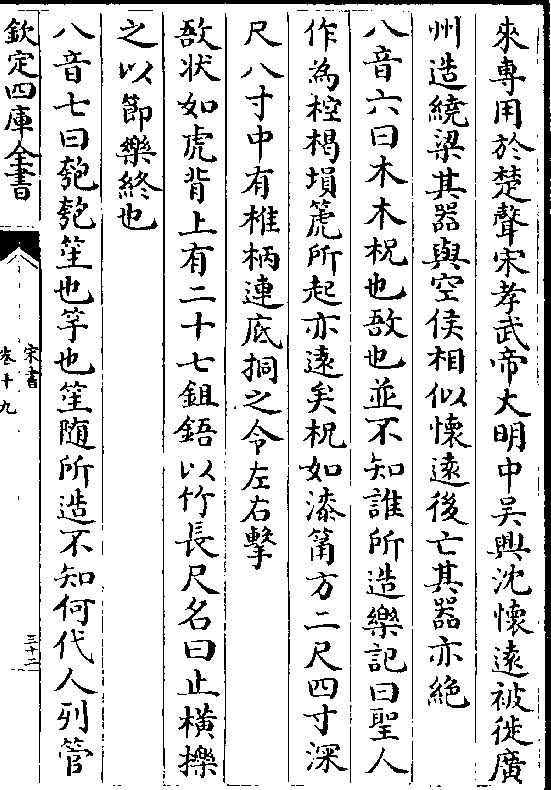 來專用於楚聲宋孝武帝大明中吴興沈懷遠被徙廣
州造繞梁其器與空侯相似懷遠後亡其器亦絶
八音六曰木木柷也敔也並不知誰所造樂記曰聖人
作為椌楬塤篪所起亦遠矣柷如漆筩方二尺四寸深
尺八寸中有椎柄連底挏之令左右擊
敔状如虎背上有二十七鉏鋙以竹長尺名曰止横擽
之以節樂終也
八音七曰匏匏笙也竽也笙隨所造不知何代人列管
欽定四庫全書
宋書
卷十九
三十二